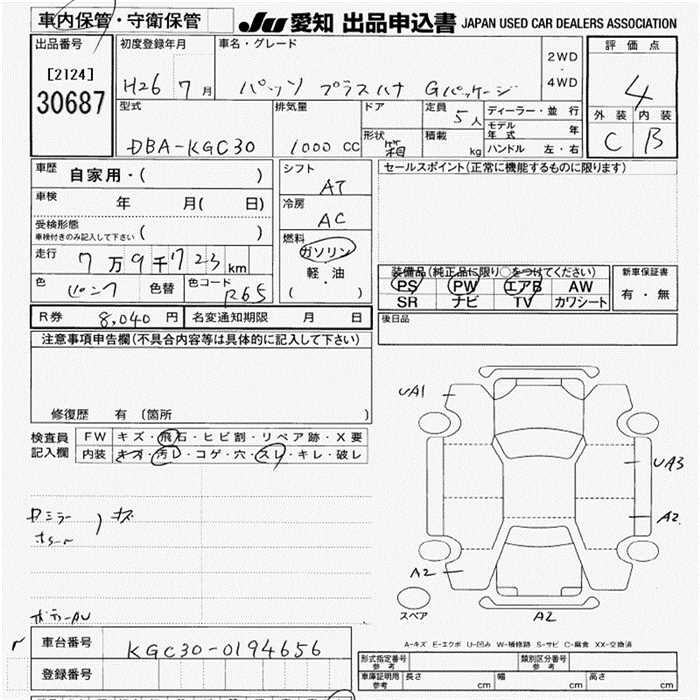 車内保管・守衛保管 JU 愛知 出品申込書 JAPAN USED CAR DEALERS ASSOCIATION
出品番号 初度登録年月 車名・グレード 2WD・4WD 評価点
[2124]
30687 H26 7月 パッソ プラスハナ Gパッケージ 4
型式 排気量 ドア 定員 5人 ディーラー・並行 外装 内装
モデル年式 年
DBA-KGC30 1000 CC 形状 箱 積載 kg ハンドル 左・右 C B
車歴 自家用・( ) シフト AT セールスポイント(正常に機能するものに限ります)
車検 年 月( 日) 冷房 AC
受検形態
車検付きのみ記入して下さい ( )
走行 7万9千723km 燃料 ガソリン・軽油 ( )
装備品(純正品に限り○をつけてください) 新車保証書
色 ピンク 色替 色コード R65 PS PW エアB AW 有・無
SR ナビ TV カワシート
R券 8,040円 名変通知期限 月 日 後日品
注意事項申告欄(不具合内容等は具体的に記入して下さい)
修復歴 有 (箇所 )
検査員記入欄 FW キズ・飛石・ヒビ割・リペア跡・X要
内装 キズ・汚レ・コゲ・穴・スレ・キレ・破レ
UA1
UA3
A2
A2
A2
スペア
Dミラー
キズ
A-キズ E-エクボ U-凹み W-補修跡 S-サビ C-腐食 XX-交換済
車台番号 KGC30-0194656
登録番号
型式指定番号 参考 類別区分番号 参考
車庫証明用 参考 長さ cm 幅 cm 高さ cm